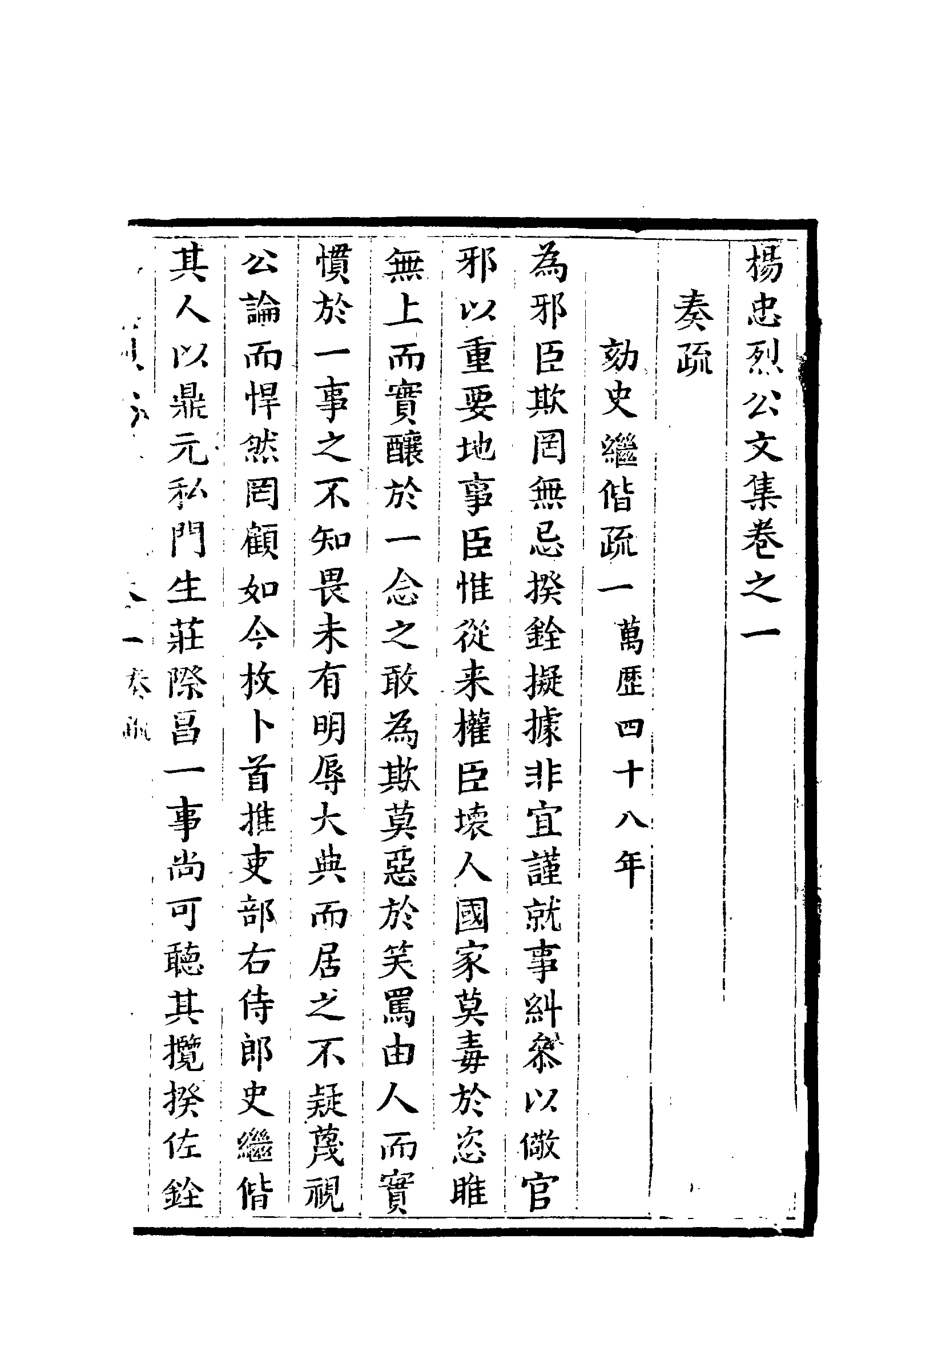 楊忠烈公文集卷之一
奏疏
劾史繼偕疏一萬歷四十八年
為邪臣欺罔無忌揆銓擬據非宜謹就事糾叅以儆官
邪以重要地事臣惟從来權臣壞人國家莫毒於恣睢
無上而實釀於一念之敢為欺莫惡於笑罵由人而實
慣於一事之不知畏未有明辱大典而居之不疑蔑視
公論而悍然罔顧如今枚卜首推吏部右侍郎史繼偕
其人以鼎元私門生莊際昌一事尚可聽其攬揆佐銓
一奏疏